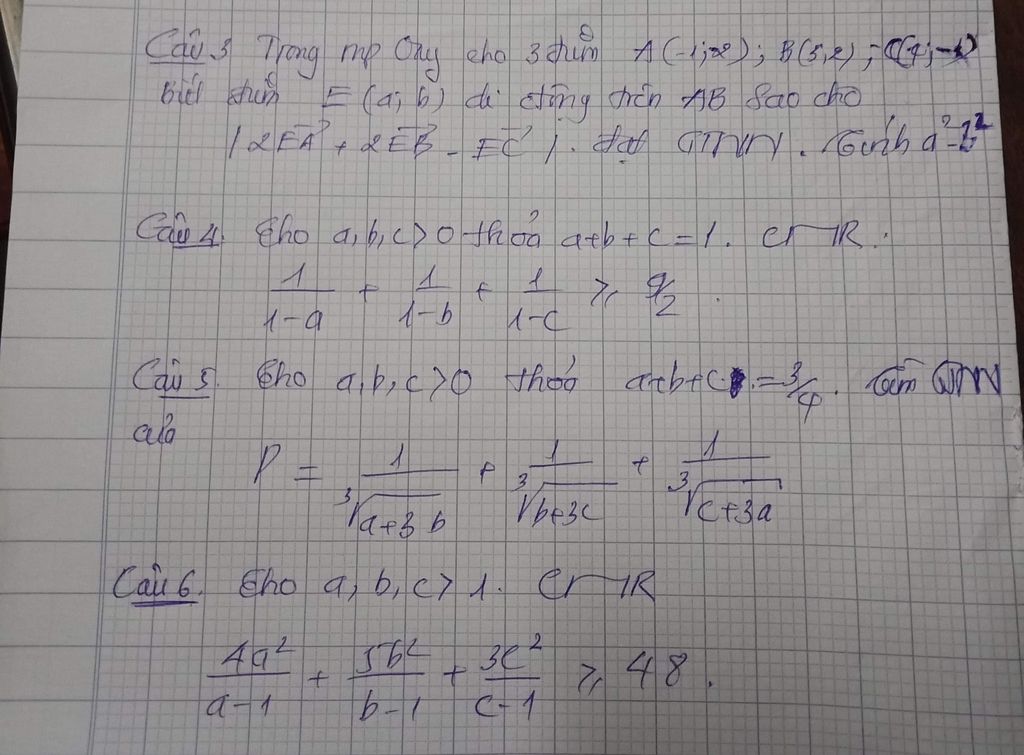 Câu 3 Trong mp Oxy cho 3 điểm A(-1;2); B(3,2);
biết điểm E(a; b) di động trên AB sao cho
|2EA + 2EB - EC|. đạt GTNN. Tính a² - b²
Câu 4. Cho a, b, c > 0 thỏa a+b+c = 1. CMR.
1/(1-a) + 1/(1-b) + 1/(1-c) ≥ 9/2.
Câu 5. Cho a, b, c > 0 thỏa a+b+c = 3/4. Tìm GTNN
của
P = 1/∛(a+3b) + 1/∛(b+3c) + 1/∛(c+3a)
Câu 6. Cho a, b, c > 1. CMR
4a²/(a-1) + 5b²/(b-1) + 3c²/(c-1) ≥ 48.